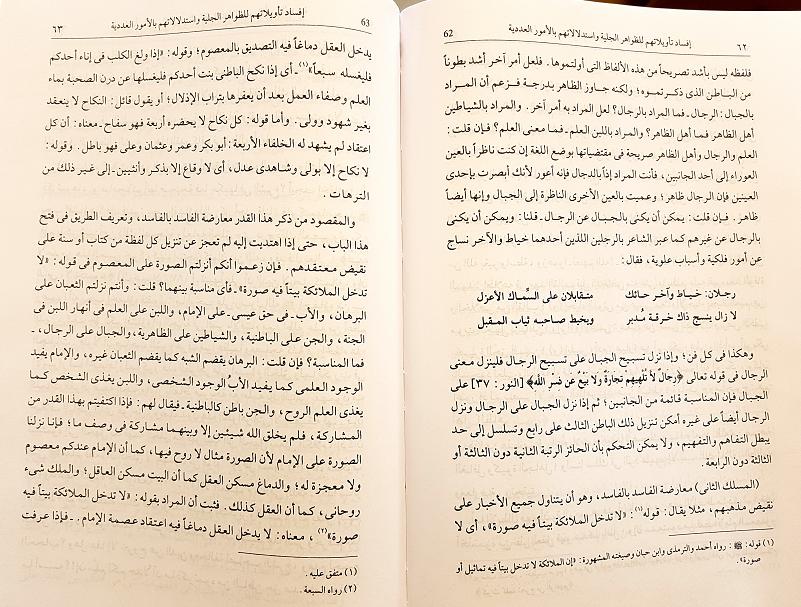 ٦٢
إفساد تأويلاتهم للظواهر الجلية واستدلالاتهم بالأمور العددية
62
فلفظه ليس بأشد تصريحاً من هذه الألفاظ التى أولتموها. فلعل أمر آخر أشد بطوناً
من الباطن الذى ذكرتموه؛ ولكنه جاوز الظاهر بدرجة فزعم أن المراد
بالجبال: الرجال ـ فما المراد بالرجال؟ لعل المراد به أمر آخر. والمراد بالشياطين
أهل الظاهر فما أهل الظاهر؟ والمراد باللبن العلم ـ فما معنى العلم؟ فإن قلت:
العلم والرجال وأهل الظاهر صريحة فى مقتضياتها بوضع اللغة إن كنت ناظراً بالعين
العوراء إلى أحد الجانبين، فأنت المراد إذاً بالدجال فإنه أعور لأنك أبصرت بإحدى
العينين فإن الرجال ظاهر؛ وعميت بالعين الأخرى الناظرة إلى الجبال وإنها أيضاً
ظاهر. فإن قلت: يمكن أن يكنى بالجبال عن الرجال ـ قلنا: ويمكن أن يكنى
بالرجال عن غيرهم كما عبر الشاعر بالرجلين اللذين أحدهما خياط والآخر نساج
عن أمور فلكية وأسباب علوية، فقال:
رجلان: خياط وآخر حائك متقابلان على السِّماك الأعزل
لا زال ينسج ذاك خرقة مُدبر ويخيط صاحبه ثياب المقبل
وهكذا فى كل فن؛ وإذا نزل تسبيح الجبال على تسبيح الرجال فلينزل معنى
الرجال فى قوله تعالى ﴿رِجَالٌ لاَّ تُلْهِيهِمْ تِجَارَةٌ وَلا بَيْعٌ عَن ذِكْرِ اللهِ﴾ [النور: ٣٧] على
الجبال فإن المناسبة قائمة من الجانبين؛ ثم إذا نزل الجبال على الرجال ونزل
الرجال أيضاً على غيره أمكن تنزيل ذلك الباطن الثالث على رابع وتسلسل إلى حد
يبطل التفاهم والتفهيم، ولا يمكن التحكم بأن الحائز الرتبة الثانية دون الثالثة أو
الثالثة دون الرابعة.
(المسلك الثانى) معارضة الفاسد بالفاسد، وهو أن يتناول جميع الأخبار على
نقيض مذهبهم، مثلا يقال: قوله(١): «لا تدخل الملائكة بيتاً فيه صورة»، أى لا
(١) قوله: ﷺ: رواه أحمد والترمذى وابن حبان وصيغته المشهورة: «إن الملائكة لا تدخل بيتاً فيه تماثيل أو
صورة».
63
إفساد تأويلاتهم للظواهر الجلية واستدلالاتهم بالأمور العددية
٦٣
يدخل العقل دماغاً فيه التصديق بالمعصوم؛ وقوله: «إذا ولغ الكلب فى إناء أحدكم
فليغسله سبعاً»(١) ـ أى إذا نكح الباطنى بنت أحدكم فليغسلها عن درن الصحبة بماء
العلم وصفاء العمل بعد أن يعفرها بتراب الإذلال؛ أو يقول قائل: النكاح لا ينعقد
بغير شهود وولى. وأما قوله: كل نكاح لا يحضره أربعة فهو سفاح ـ معناه: أن كل
اعتقاد لم يشهد له الخلفاء الأربعة: أبو بكر وعمر وعثمان وعلى فهو باطل. وقوله:
لا نكاح إلا بولى وشاهدى عدل، أى لا وقاع إلا بذكر وأنثيين ـ إلى غير ذلك من
الترهات.
والمقصود من ذكر هذا القدر معارضة الفاسد بالفاسد، وتعريف الطريق فى فتح
هذا الباب، حتى إذا اهتديت إليه لم تعجز عن تنزيل كل لفظة من كتاب أو سنة على
نقيض معتقدهم. فإن زعموا أنكم أنزلتم الصورة على المعصوم فى قوله: «لا
تدخل الملائكة بيتاً فيه صورة» ـ فأى مناسبة بينهما؟ قلت: وأنتم نزلتم الثعبان على
البرهان، والأب ـ فى حق عيسى ـ على الإمام، واللبن على العلم فى أنهار اللبن فى
الجنة، والجن على الباطنية، والشياطين على الظاهرية، والجبال على الرجال، ـ
فما المناسبة؟ فإن قلت: البرهان يقضم الشبه كما يقضم الثعبان غيره، والإمام يفيد
الوجود العلمى كما يفيد الأبُ الوجود الشخصى، واللبن يغذى الشخص كما
يغذى العلم الروح، والجن باطن كالباطنية ـ فيقال لهم: فإذا اكتفيتم بهذا القدر من
المشاركة، فلم يخلق الله شيئين إلا وبينهما مشاركة فى وصف ما؛ فإنا نزلنا
الصورة على الإمام لأن الصورة مثال لا روح فيها، كما أن الإمام عندكم معصوم
ولا معجزة له؛ والدماغ مسكن العقل كما أن البيت مسكن العاقل؛ والملك شىء
روحانى، كما أن العقل كذلك. فثبت أن المراد بقوله: «لا تدخل الملائكة بيتاً فيه
صورة»(٢)، معناه: لا يدخل العقل دماغاً فيه اعتقاد عصمة الإمام. ـ فإذا عرفت
(١) متفق عليه.
(٢) رواه السبعة.